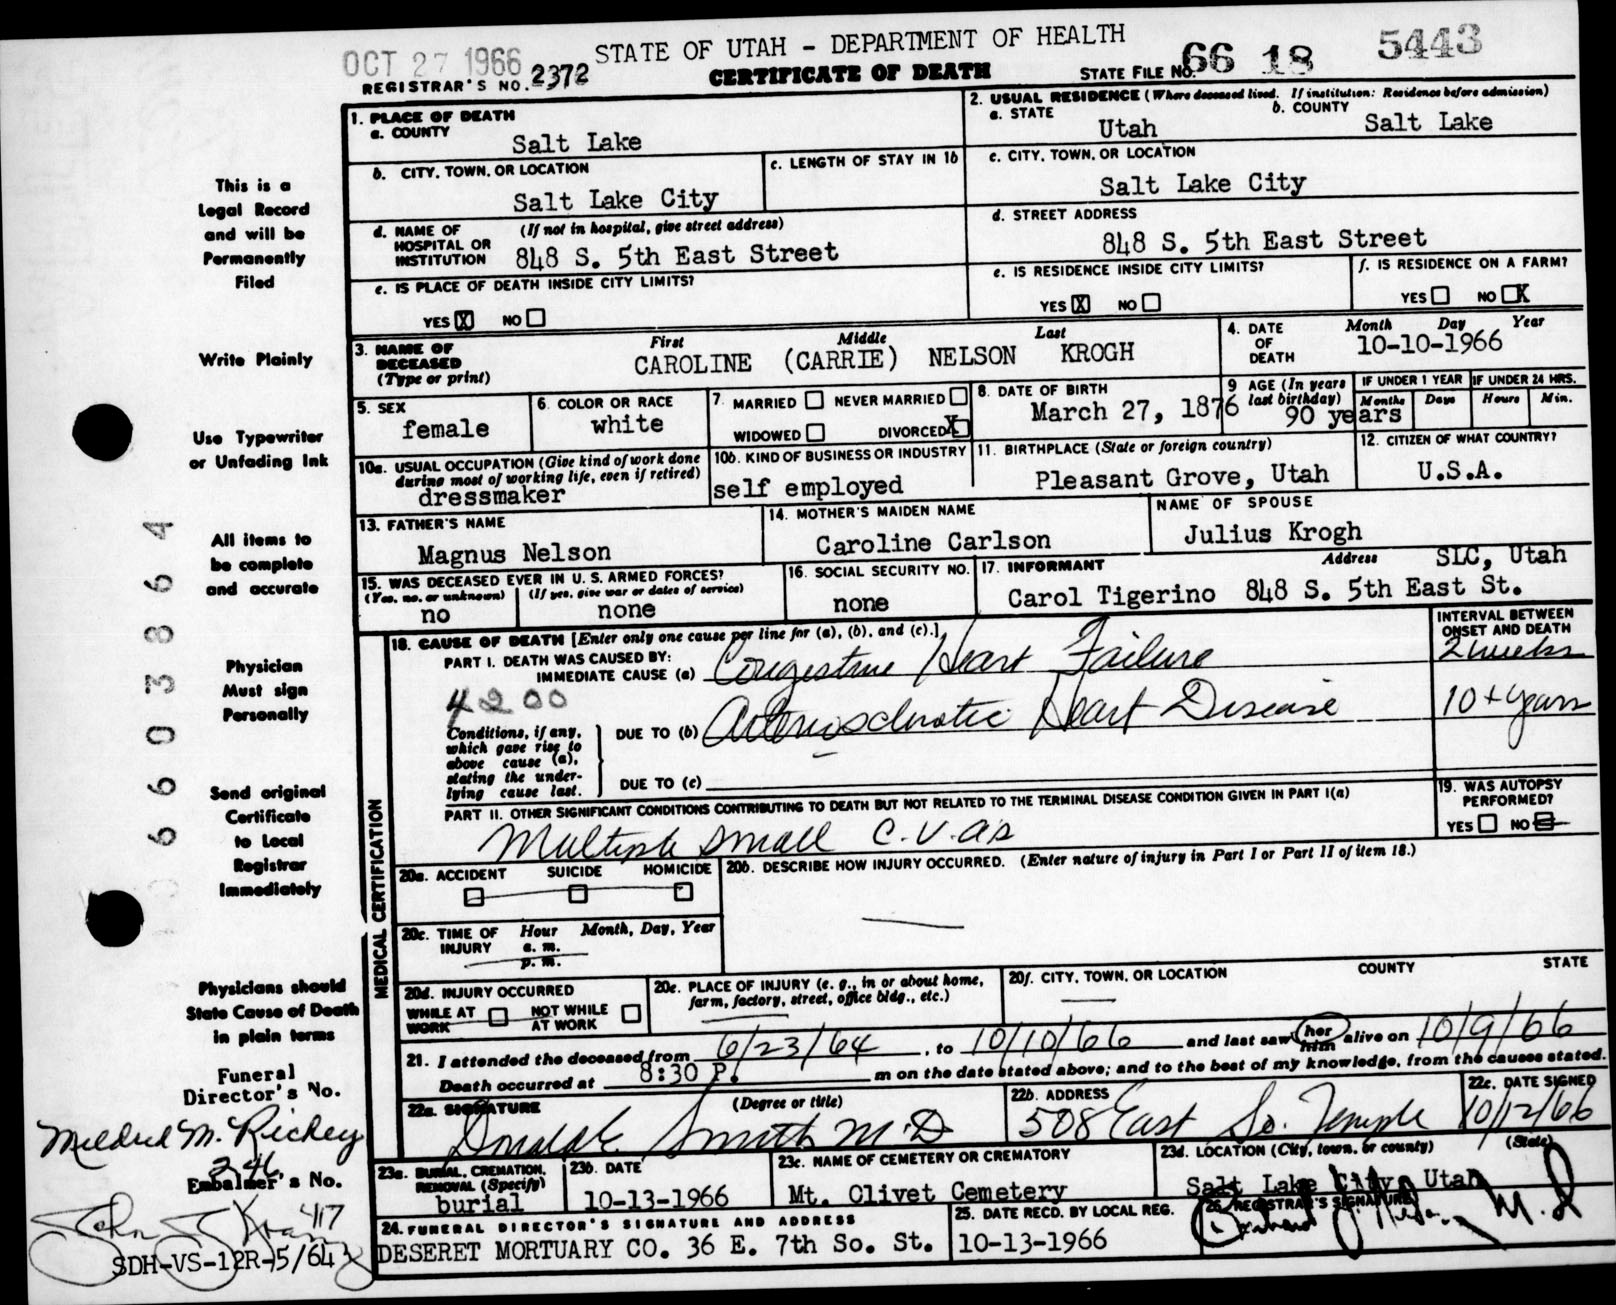 OCT 27 1966
STATE OF UTAH - DEPARTMENT OF HEALTH
REGISTRAR'S NO. 2372
CERTIFICATE OF DEATH
STATE FILE NO. 66 18 5443
1. PLACE OF DEATH
a. COUNTY
Salt Lake
2. USUAL RESIDENCE (Where deceased lived. If institution: Residence before admission)
a. STATE
Utah
b. COUNTY
Salt Lake
b. CITY, TOWN, OR LOCATION
Salt Lake City
c. LENGTH OF STAY IN 1b
c. CITY, TOWN, OR LOCATION
Salt Lake City
d. NAME OF HOSPITAL OR INSTITUTION
(If not in hospital, give street address)
848 S. 5th East Street
d. STREET ADDRESS
848 S. 5th East Street
e. IS PLACE OF DEATH INSIDE CITY LIMITS?
YES X NO
e. IS RESIDENCE INSIDE CITY LIMITS?
YES X NO
f. IS RESIDENCE ON A FARM?
YES NO X
3. NAME OF DECEASED (Type or print)
First Middle Last
CAROLINE (CARRIE) NELSON KROGH
4. DATE OF DEATH
Month Day Year
10-10-1966
5. SEX
female
6. COLOR OR RACE
white
7. MARRIED NEVER MARRIED
WIDOWED DIVORCED X
8. DATE OF BIRTH
March 27, 1876
9 AGE (In years last birthday)
90 years
IF UNDER 1 YEAR
Months Days
IF UNDER 24 HRS.
Hours Min.
10a. USUAL OCCUPATION (Give kind of work done during most of working life, even if retired)
dressmaker
10b. KIND OF BUSINESS OR INDUSTRY
self employed
11. BIRTHPLACE (State or foreign country)
Pleasant Grove, Utah
12. CITIZEN OF WHAT COUNTRY?
U.S.A.
13. FATHER'S NAME
Magnus Nelson
14. MOTHER'S MAIDEN NAME
Caroline Carlson
NAME OF SPOUSE
Julius Krogh
15. WAS DECEASED EVER IN U. S. ARMED FORCES?
(Yes, no, or unknown) (If yes, give war or dates of service)
no none
16. SOCIAL SECURITY NO.
none
17. INFORMANT Address
SLC, Utah
Carol Tigerino 848 S. 5th East St.
18. CAUSE OF DEATH [Enter only one cause per line for (a), (b), and (c).]
INTERVAL BETWEEN ONSET AND DEATH
PART I. DEATH WAS CAUSED BY:
IMMEDIATE CAUSE (a) Congestive Heart Failure
2 weeks
4200
Conditions, if any, which gave rise to above cause (a), stating the underlying cause last.
DUE TO (b) Arteriosclerotic Heart Disease
10 + years
DUE TO (c)
PART II. OTHER SIGNIFICANT CONDITIONS CONTRIBUTING TO DEATH BUT NOT RELATED TO THE TERMINAL DISEASE CONDITION GIVEN IN PART I(a)
Multiple small C.V.A's
19. WAS AUTOPSY PERFORMED?
YES NO
MEDICAL CERTIFICATION
20a. ACCIDENT SUICIDE HOMICIDE
20b. DESCRIBE HOW INJURY OCCURRED. (Enter nature of injury in Part I or Part II of item 18.)
20c. TIME OF INJURY Hour Month, Day, Year
a. m.
p. m.
20d. INJURY OCCURRED
WHILE AT WORK NOT WHILE AT WORK
20e. PLACE OF INJURY (e. g., in or about home, farm, factory, street, office bldg., etc.)
20f. CITY, TOWN, OR LOCATION COUNTY STATE
21. I attended the deceased from 6/23/64, to 10/10/66 and last saw her him alive on 10/9/66
Death occurred at 8:30 P. m on the date stated above; and to the best of my knowledge, from the causes stated.
22a. SIGNATURE (Degree or title)
Donald E. Smith M.D
22b. ADDRESS
508 East So. Temple
22c. DATE SIGNED
10/12/66
23a. BURIAL, CREMATION, REMOVAL (Specify)
burial
23b. DATE
10-13-1966
23c. NAME OF CEMETERY OR CREMATORY
Mt. Olivet Cemetery
23d. LOCATION (City, town, or county) (State)
Salt Lake City, Utah
24. FUNERAL DIRECTOR'S SIGNATURE AND ADDRESS
DESERET MORTUARY CO. 36 E. 7th So. St.
25. DATE RECD. BY LOCAL REG.
10-13-1966
26. REGISTRAR'S SIGNATURE
This is a
Legal Record
and will be
Permanently
Filed
Write Plainly
Use Typewriter
or Unfading Ink
All items to
be complete
and accurate
Physician
Must sign
Personally
Send original
Certificate
to Local
Registrar
Immediately
Physicians should
State Cause of Death
in plain terms
Funeral
Director's No.
Mildred M. Richey
246
Embalmer's No.
417
SDH-VS-12R-5/64
66038 64